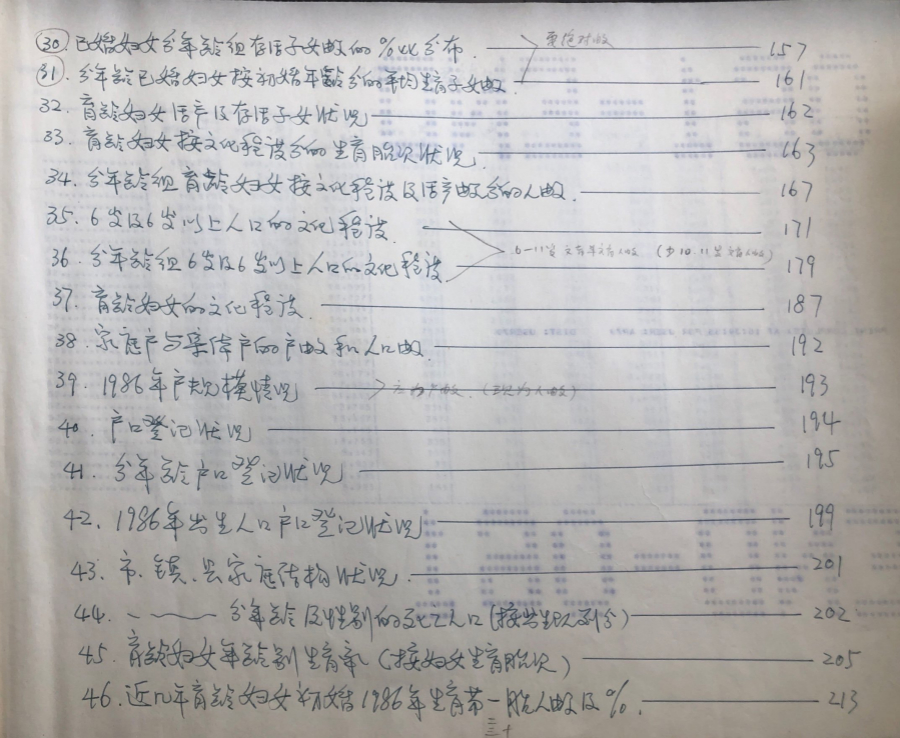 30. 已婚妇女分年龄组存活子女数的%比分布 157
要绝对数
31. 分年龄已婚妇女按初婚年龄分的平均生育子女数 161
32. 育龄妇女活产及存活子女状况 162
33. 育龄妇女按文化程度分的生育胎次状况 163
34. 分年龄组育龄妇女按文化程度及活产数分的人数 167
35. 6岁及6岁以上人口的文化程度 171
6-11岁
36. 分年龄组6岁及6岁以上人口的文化程度 179
37. 育龄妇女的文化程度 187
38. 家庭户与集体户的户数和人口数 192
39. 1986年户规模情况 193
应为户数.(现为人数)
40. 户口登记状况 194
41. 分年龄户口登记状况 195
42. 1986年出生人口户口登记状况 199
43. 市、镇、县家庭结构状况 201
44. 分年龄及性别的死亡人口 202
45. 育龄妇女年龄别生育率(按妇女生育胎次) 205
46. 近几年育龄妇女初婚1986年生育第一胎人数及%. 213